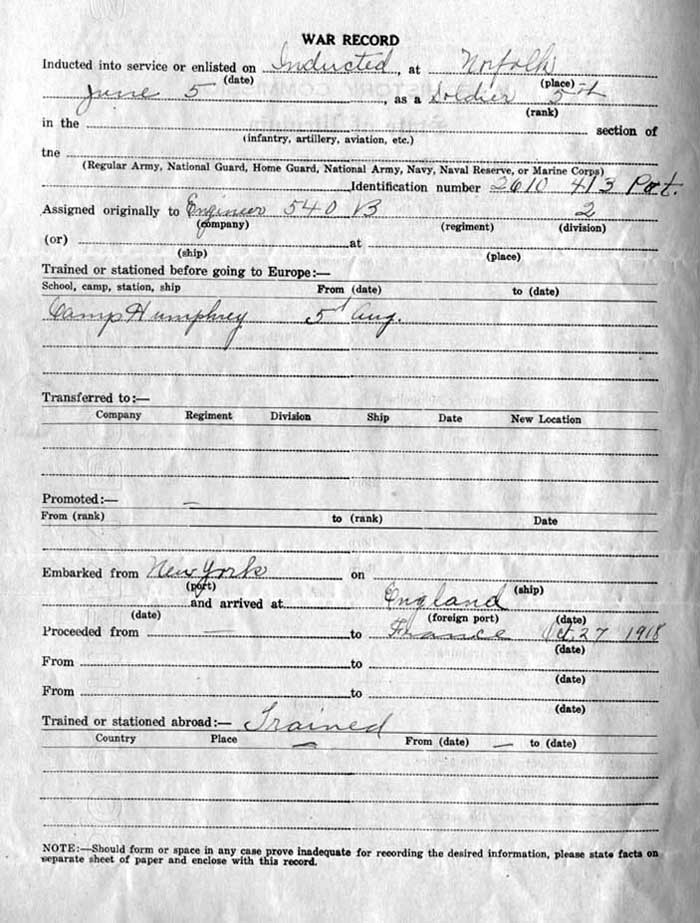 WAR RECORD
Inducted into service or enlisted on Inducted, at Norfolk
(date) (place)
June 5, as a Soldier 5th
(rank)
in the section of
(infantry, artillery, aviation, etc.)
tne
(Regular Army, National Guard, Home Guard, National Army, Navy, Naval Reserve, or Marine Corps)
Identification number 2610 413 Pvt.
Assigned originally to Engineer 540 B 2
(company) (regiment) (division)
(or) at
(ship) (place)
Trained or stationed before going to Europe:—
School, camp, station, ship From (date) to (date)
Camp Humphrey 5 Aug.
Transferred to:—
Company Regiment Division Ship Date New Location
Promoted:—
From (rank) to (rank) Date
Embarked from New York on
(port) (ship)
and arrived at England
(date) (foreign port) (date)
Proceeded from to France Oct. 27 1918
(date)
From to
(date)
From to
(date)
Trained or stationed abroad:— Trained
Country Place From (date) to (date)
NOTE:—Should form or space in any case prove inadequate for recording the desired information, please state facts on
separate sheet of paper and enclose with this record.